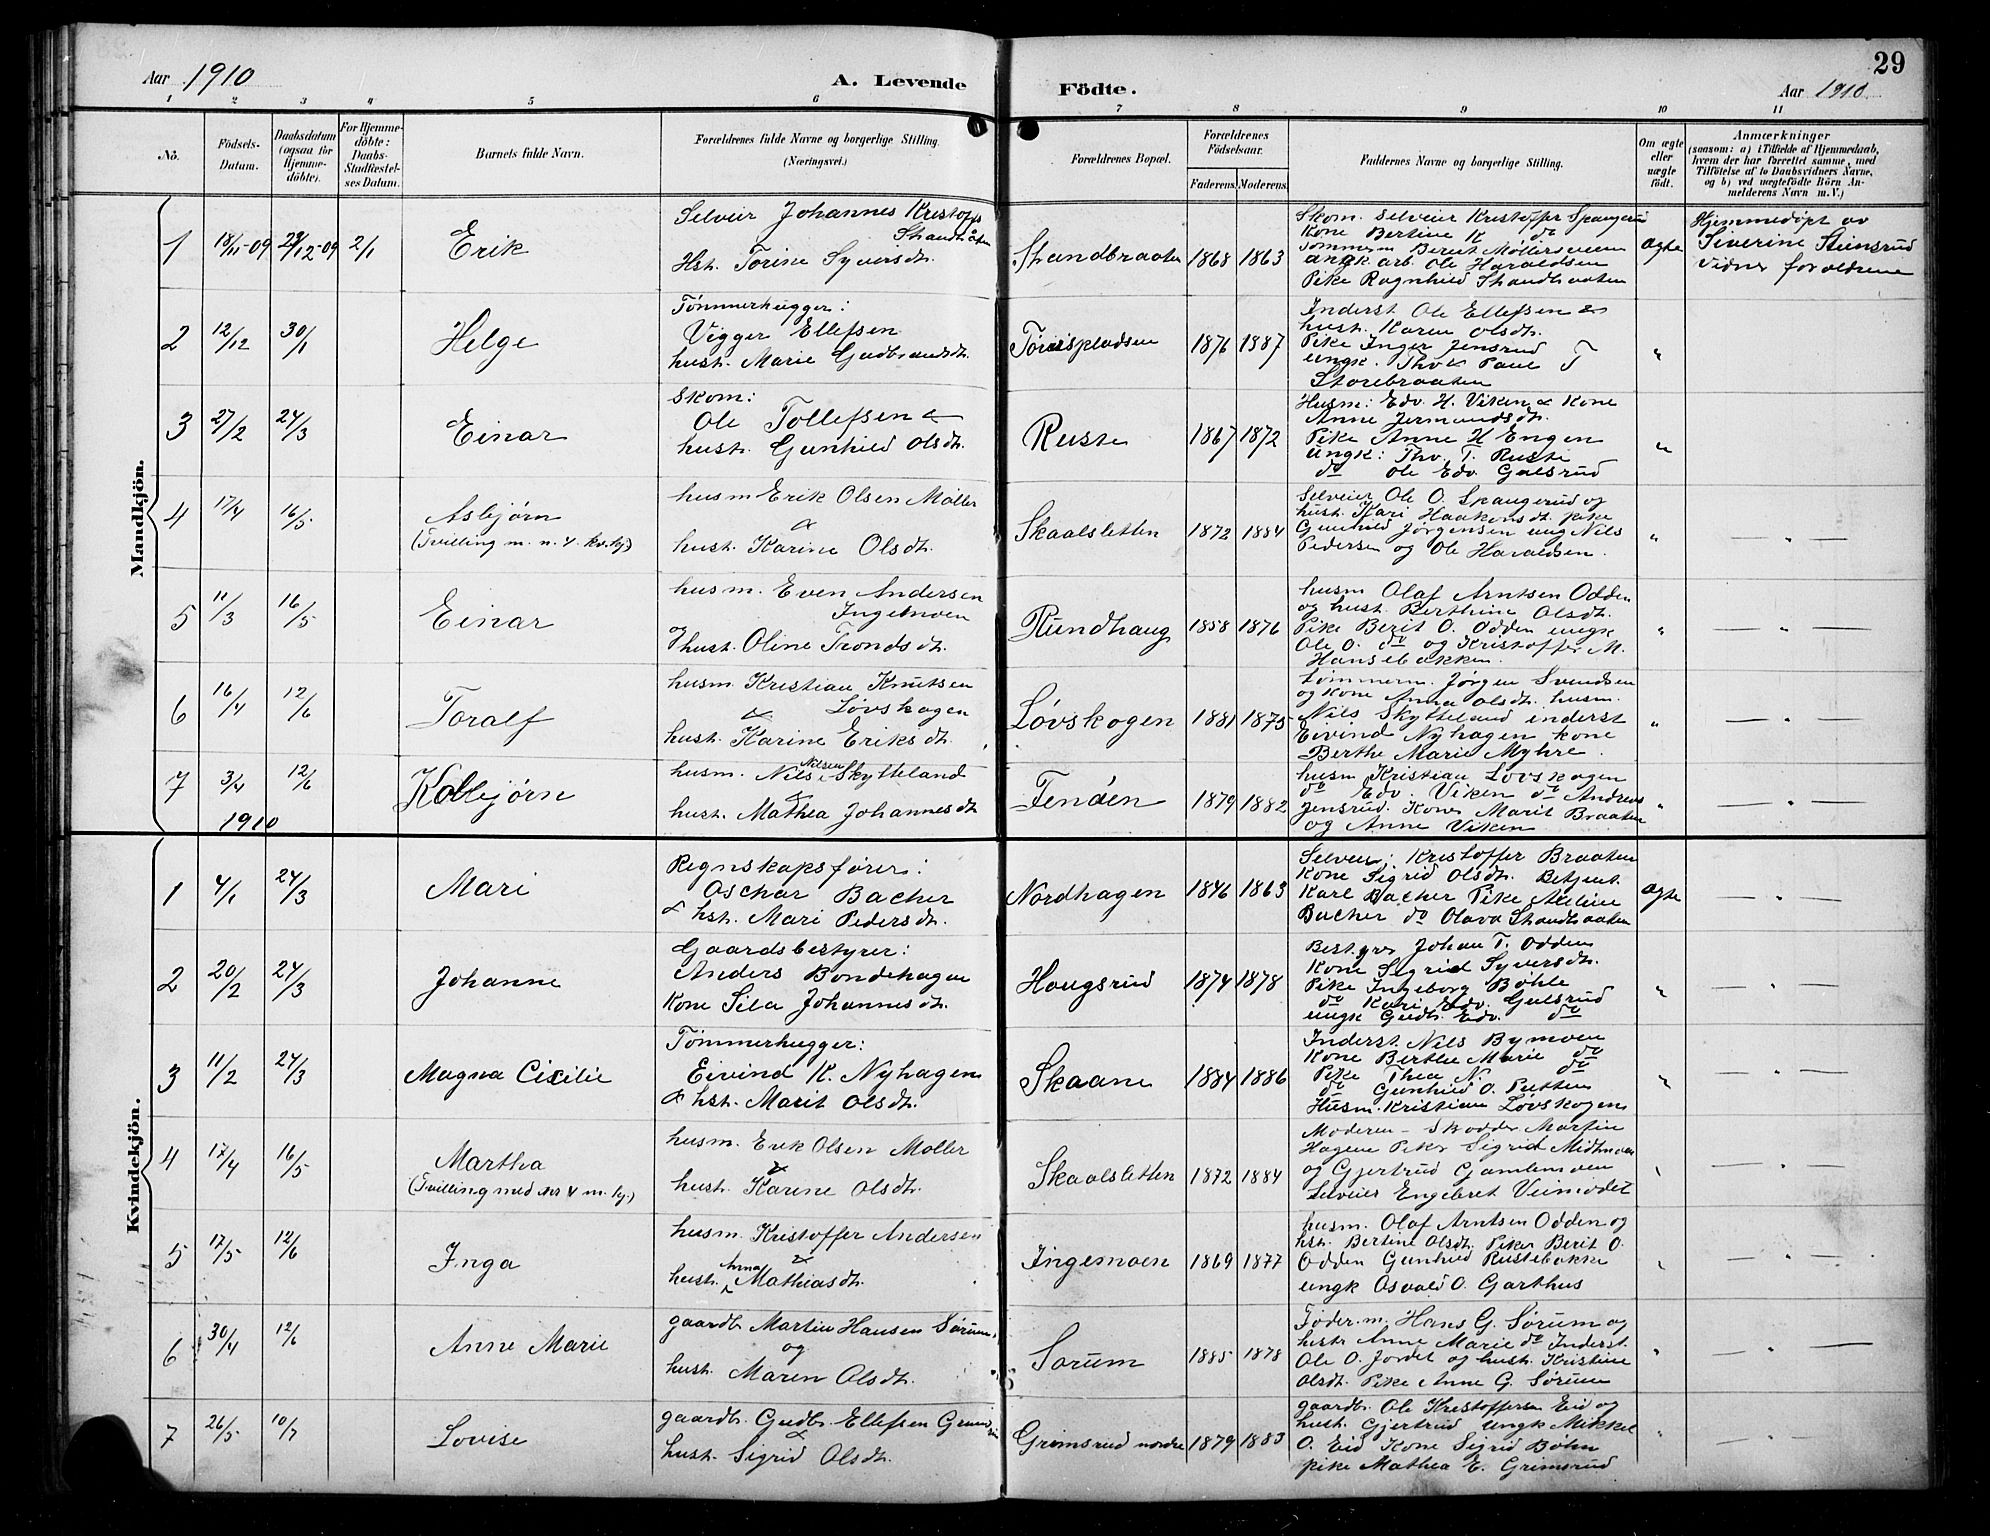 29
Aar 1910
A. Levende Födte.
Aar 1910
1 2 3 4 5 6 7 8 9 10 11
No.
Födsels-Datum.
Daabsdatum (ogsaa for Hjemme-döbte).
For Hjemme-döbte: Daabs-Stadfæstel-ses Datum.
Barnets fulde Navn.
Forældrenes fulde Navne og borgerlige Stilling. (Næringsvei.)
Forældrenes Bopæl.
Forældrenes Födselsaar.
Faderens. Moderens.
Faddernes Navne og borgerlige Stilling.
Om ægte eller uægte födt.
Anmærkninger
(saasom: a) i Tilfælde af Hjemmedaab, hvem der har forrettet samme, med Tilföielse af to Daabsvidners Navne, og b) ved uægtefödte Börn An-melderens Navn m. V.)
Mandkjön.
1 18/11-09 29/12-09 2/1 Erik
Selveier Johannes Kristoffs
Strandbråten
Hst. Torine Syversdt.
Strandbraaten 1868 1863
Skom. Selveier Kristoffer Spangerud
Kone Bertine K do
Tømmerm Berit Møllersveen
ungk arb. Ole Haraldsen
Pike Ragnhild Strandbraaten
ægte
Hjemmedøpt av
Siverine Stensrud
Vidner forældrene
2 12/12 30/1 Helge
Tømmerhugger:
Vigger Ellefsen
hust. Marie Gudbrandsdt.
1876 1887
Inderst Ole Ellefsen &
hust. Karen Olsdt.
Pike Inger Jensrud
ungk. Thv & Paul T
Storebraaten
"
3 27/2 24/3 Einar
Skom:
Ole Tollefsen &
hust. Gunhild Olsdt.
Ruste 1867 1872
Husm: Edv. H. Viken & Kone
Anne Jermundsdt.
Pike Anne H Engen
Ungk: Thv. T. Ruste
do Ole Edv. Gulsrud
"
4 17/4 16/5 Asbjørn
(Tvilling m. n. 4. kv.kj.)
husm Erik Olsen Møller
&
hust. Karine Olsdt.
Skaalsletten 1872 1884
Selveier Ole O. Spangerud og
hust. Kari Haakonsdt. pike
Gunhild Jørgensen ung Nils
Pedersen og Ole Haraldsen.
" — " —
5 11/3 16/5 Einar
husm. Even Andersen
Ingelmoen
og hust. Oline Trondsdt.
Rundhaug 1858 1876
husm Olaf Arntsen Odden
og hust. Berthine Olsdt.
Pike Berit O. Odden ungk
Ole O. do og Kristoffer M.
Hansebakken.
" — " —
6 16/4 12/6 Toralf
husm Kristian Knutsen
Løvskogen
&
hust. Karine Eriksdt.
Løvskogen 1881 1875
tømmerm. Jørgen Svendsen
og kone Anna Olsdt. husm.
Nils Skytteland inderst
Eivind Nyhagen kone
Berthe Marie Myhre.
" — " —
7 3/4 12/6 Kolbjørn
husm. Nils Nilsen Skytteland
&
hust. Mathea Johannesdt
Tenden 1879 1882
husm Kristian Løvskogen
do Edv. Viken do Andreas
Jensrud. Koner Marit Braaten
og Anne Viken
" — " —
1910
Kvindekjön.
1 4/1 24/3 Mari
Regnskapsfører:
Oschar Bacher
& hst. Mari Pedersdt.
Nordhagen 1846 1863
Selveier: Kristoffer Braaten
Kone Sigrid Olsdt. Betjent
Karl Bacher Pike
Bacher do Olava Strandbraaten
ægte — " —
2 20/2 24/3 Johanne
Gaardsbestyrer:
Anders Bondehagen
Kone Sila Johannesdt.
Haugsrud 1874 1878
Bestyrer Johan T. Odden
Kone Sigrid Syversdt.
Pike Ingeborg Bøhle
do Kari Edv. Gulsrud
ungk Gudbr. Edv. do
" — " —
3 11/2 24/3 Magna Cicilie
Tømmerhugger:
Eivind K. Nyhagen
& hst. Marit Olsdt.
Skaane 1884 1886
Inderst Nils Bymoen
Kone Berthe Marie do
Pike Thea N. do
do Gunhild O. Putten
Husm. Kristian Løvskogen
" — " —
4 17/4 16/5 Martha
(Tvilling med nr 4 m. kj.)
husm. Erik Olsen Møller
&
hust. Karine Olsdt.
Skaalsletten 1872 1884
Moderen - Skodder Martin
Hagene Piker Sigrid Midtmoen
og Gjertrud Gamlemoen
Selveier Engebret Veimodet
" — " —
5 17/5 12/6 Inga
husm. Kristoffer Andersen
&
hust. Anna Mathiasdt.
Ingemoen 1869 1877
husm. Olaf Arntsen Odden og
hst. Bertine Olsdt. Piker Berit O.
Odden Gunhild Rustebakke
ungk Osvald O. Garthus
" — " —
6 30/4 12/6 Anne Marie
gaardb. Martin Hansen Sørum
og
hust. Maren Olsdt.
Sørum 1885 1878
Føder.m. Hans G. Sørum og
hust. Anne Marie do Inderst
Ole O. Jordet og hust. Kristine
Olsdt. Pike Anne G. Sørum
" — " —
7 26/5 10/7 Lovise
gaardb. Gudb. Ellefsen Grimsrud
&
hust. Sigrid Olsdt.
Grimsrud nordre 1879 1883
gaardb. Ole Kristoffersen Eid og
hust. Gjertrud Ungk Mikkel
O. Eid Kone Sigrid Bøhn
pike Mathea E. Grimsrud
" — " —